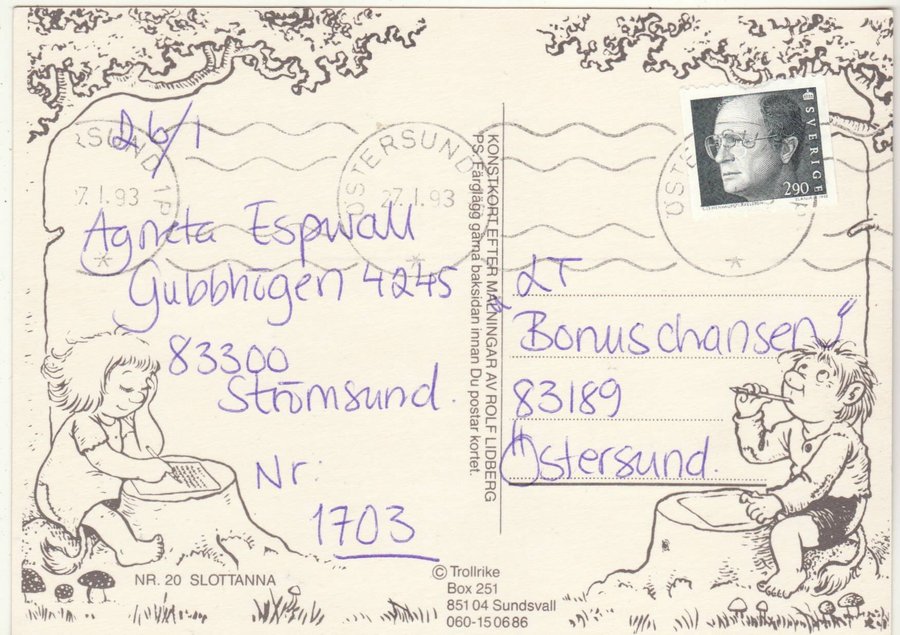 26/1
Agneta Espwall
Gubbhögen 4245
83300
Strömsund.
Nr:
1703
NR. 20 SLOTTANNA
RSUND 1
7.1.93
ÖSTERSUND
27.1.93
KONSTKORT EFTER MÅLNINGAR AV ROLF LIDBERG
PS. Färglägg gärna baksidan innan Du postar kortet.
© Trollrike
Box 251
851 04 Sundsvall
060-15 06 86
SVERIGE
290
LT
Bonuschansen
83189
Östersund.